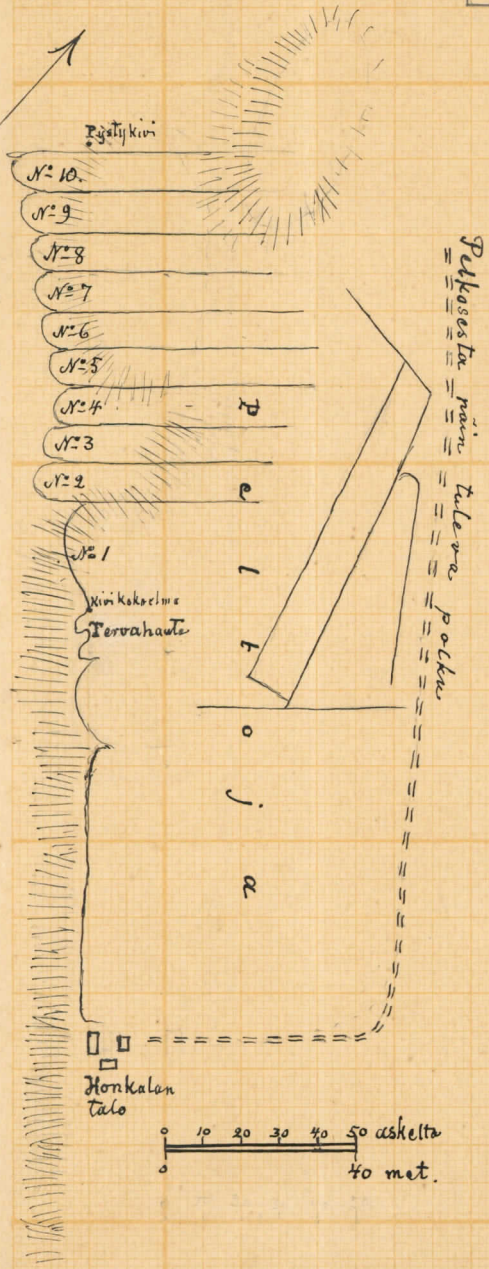 Pystykivi
No 10.
No 9
No 8
No 7
No 6
No 5
No 4
No 3
No 2
No 1
Kivikokoelma
Tervahauta
Peltoja
Pelkosesta päin tuleva polku
Honkalan
talo
0 10 20 30 40 50 askelta
0 40 met.